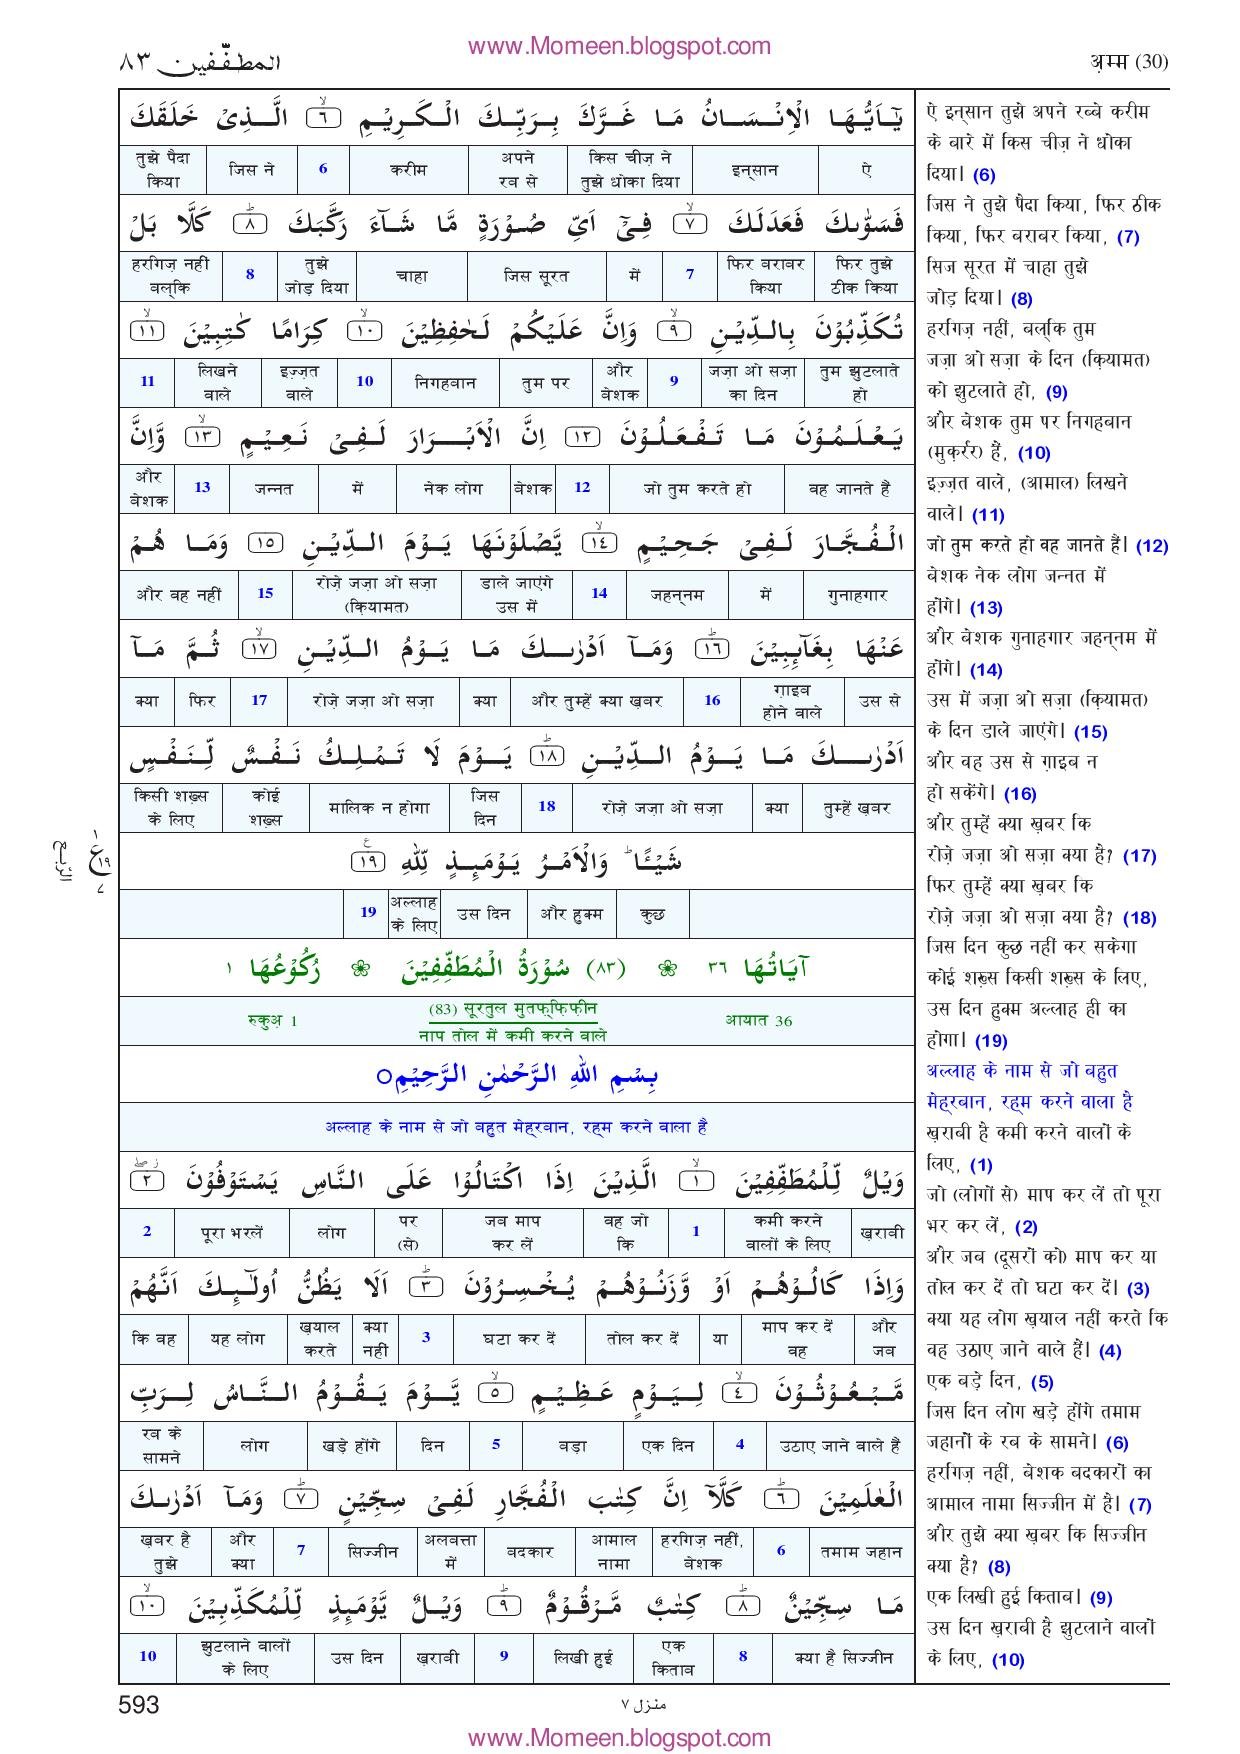 www.Momeen.blogspot.com
المطفّفين ٨٣
अ़म्म (30)
يٰۤاَيُّهَا الْاِنْسَانُ مَا غَرَّكَ بِرَبِّكَ الْكَرِيْمِ ۙ‏﴿٦﴾ الَّذِىْ خَلَقَكَ
ऐ | इन्सान | किस चीज़ ने तुझे धोका दिया | अपने रब से | करीम | 6 | जिस ने | तुझे पैदा किया
فَسَوّٰٮكَ فَعَدَلَكَ ۙ‏﴿٧﴾ فِىْۤ اَىِّ صُوْرَةٍ مَّا شَآءَ رَكَّبَكَ ؕ‏﴿٨﴾ كَلَّا بَلْ
फिर तुझे ठीक किया | फिर बराबर किया | 7 | में | जिस सूरत | चाहा | तुझे जोड़ दिया | 8 | हरगिज़ नहीं बल्कि
تُكَذِّبُوْنَ بِالدِّيْنِ ۙ‏﴿٩﴾ وَاِنَّ عَلَيْكُمْ لَحٰفِظِيْنَ ۙ‏﴿١٠﴾ كِرَامًا كٰتِبِيْنَ ۙ‏﴿١١﴾
तुम झुटलाते हो | जज़ा ओ सज़ा का दिन | 9 | और बेशक | तुम पर | निगहबान | 10 | इज़्ज़त वाले | लिखने वाले | 11
يَعْلَمُوْنَ مَا تَفْعَلُوْنَ ﴿١٢﴾ اِنَّ الْاَبْرَارَ لَفِىْ نَعِيْمٍ ۙ‏﴿١٣﴾ وَّاِنَّ
वह जानते हैं | जो तुम करते हो | 12 | बेशक | नेक लोग | में | जन्नत | 13 | और बेशक
الْفُجَّارَ لَفِىْ جَحِيْمٍ ۙ‏﴿١٤﴾ يَّصْلَوْنَهَا يَوْمَ الدِّيْنِ ﴿١٥﴾ وَمَا هُمْ
गुनाहगार | में | जहन्नम | 14 | डाले जाएंगे उस में | रोज़े जज़ा ओ सज़ा (क़ियामत) | 15 | और वह नहीं
عَنْهَا بِغَآئِبِيْنَ ؕ‏﴿١٦﴾ وَمَاۤ اَدْرٰٮكَ مَا يَوْمُ الدِّيْنِ ۙ‏﴿١٧﴾ ثُمَّ مَاۤ
उस से | ग़ाइब होने वाले | 16 | और तुम्हें क्या ख़बर | क्या | रोज़े जज़ा ओ सज़ा | 17 | फिर | क्या
اَدْرٰٮكَ مَا يَوْمُ الدِّيْنِ ؕ‏﴿١٨﴾ يَوْمَ لَا تَمْلِكُ نَفْسٌ لِّنَفْسٍ
तुम्हें ख़बर | क्या | रोज़े जज़ा ओ सज़ा | 18 | जिस दिन | मालिक न होगा | कोई शख़्स | किसी शख़्स के लिए
شَيْـًٔا ؕ وَالْاَمْرُ يَوْمَئِذٍ لِّلّٰهِ ﴿١٩﴾
कुछ | और हुक्म | उस दिन | अल्लाह के लिए | 19
ع ١ ١٩ ٧
الرّبع
آيَاتُهَا ٣٦ ❀ (٨٣) سُوْرَةُ الْمُطَفِّفِيْنَ ❀ رُكُوْعُهَا ١
आयात 36 | (83) सूरतुल मुतफ़्फ़िफ़ीन | रुकुअ़ 1
नाप तोल में कमी करने वाले
بِسْمِ اللهِ الرَّحْمٰنِ الرَّحِيْمِ○
अल्लाह के नाम से जो बहुत मेह्रबान, रह्म करने वाला है
وَيْلٌ لِّلْمُطَفِّفِيْنَ ۙ‏﴿١﴾ الَّذِيْنَ اِذَا اكْتَالُوْا عَلَى النَّاسِ يَسْتَوْفُوْنَ ﴿٢﴾
ख़राबी | कमी करने वालों के लिए | 1 | वह जो कि | जब माप कर लें | पर (से) | लोग | पूरा भरलें | 2
وَاِذَا كَالُوْهُمْ اَوْ وَّزَنُوْهُمْ يُخْسِرُوْنَ ؕ‏﴿٣﴾ اَلَا يَظُنُّ اُولٰٓئِكَ اَنَّهُمْ
और जब | माप कर दें वह | या | तोल कर दें | घटा कर दें | 3 | क्या नहीं | ख़याल करते | यह लोग | कि वह
مَّبْعُوْثُوْنَ ۙ‏﴿٤﴾ لِيَوْمٍ عَظِيْمٍ ۙ‏﴿٥﴾ يَّوْمَ يَقُوْمُ النَّاسُ لِرَبِّ
उठाए जाने वाले हैं | 4 | एक दिन | बड़ा | 5 | दिन | खड़े होंगे | लोग | रब के सामने
الْعٰلَمِيْنَ ؕ‏﴿٦﴾ كَلَّاۤ اِنَّ كِتٰبَ الْفُجَّارِ لَفِىْ سِجِّيْنٍ ؕ‏﴿٧﴾ وَمَاۤ اَدْرٰٮكَ
तमाम जहान | 6 | हरगिज़ नहीं, बेशक | आमाल नामा | बदकार | अलबत्ता में | सिज्जीन | 7 | और क्या | ख़बर है तुझे
مَا سِجِّيْنٌ ؕ‏﴿٨﴾ كِتٰبٌ مَّرْقُوْمٌ ؕ‏﴿٩﴾ وَيْلٌ يَّوْمَئِذٍ لِّلْمُكَذِّبِيْنَ ۙ‏﴿١٠﴾
क्या है सिज्जीन | 8 | एक किताब | लिखी हुई | 9 | ख़राबी | उस दिन | झुटलाने वालों के लिए | 10
ऐ इन्सान तुझे अपने रब्बे करीम
के बारे में किस चीज़ ने धोका
दिया। (6)
जिस ने तुझे पैदा किया, फिर ठीक
किया, फिर बराबर किया, (7)
सिज सूरत में चाहा तुझे
जोड़ दिया। (8)
हरगिज़ नहीं, बल्कि तुम
जज़ा ओ सज़ा के दिन (क़ियामत)
को झुटलाते हो, (9)
और बेशक तुम पर निगहबान
(मुक़र्रर) हैं, (10)
इज़्ज़त वाले, (आमाल) लिखने
वाले। (11)
जो तुम करते हो वह जानते हैं। (12)
बेशक नेक लोग जन्नत में
होंगे। (13)
और बेशक गुनाहगार जहन्नम में
होंगे। (14)
उस में जज़ा ओ सज़ा (क़ियामत)
के दिन डाले जाएंगे। (15)
और वह उस से ग़ाइब न
हो सकेंगे। (16)
और तुम्हें क्या ख़बर कि
रोज़े जज़ा ओ सज़ा क्या है? (17)
फिर तुम्हें क्या ख़बर कि
रोज़े जज़ा ओ सज़ा क्या है? (18)
जिस दिन कुछ नहीं कर सकेगा
कोई शख़्स किसी शख़्स के लिए,
उस दिन हुक्म अल्लाह ही का
होगा। (19)
अल्लाह के नाम से जो बहुत
मेह्रबान, रह्म करने वाला है
ख़राबी है कमी करने वालों के
लिए, (1)
जो (लोगों से) माप कर लें तो पूरा
भर कर लें, (2)
और जब (दूसरों को) माप कर या
तोल कर दें तो घटा कर दें। (3)
क्या यह लोग ख़याल नहीं करते कि
वह उठाए जाने वाले हैं। (4)
एक बड़े दिन, (5)
जिस दिन लोग खड़े होंगे तमाम
जहानों के रब के सामने। (6)
हरगिज़ नहीं, बेशक बदकारों का
आमाल नामा सिज्जीन में है। (7)
और तुझे क्या ख़बर कि सिज्जीन
क्या है? (8)
एक लिखी हुई किताब। (9)
उस दिन ख़राबी है झुटलाने वालों
के लिए, (10)
593
منزل ٧
www.Momeen.blogspot.com